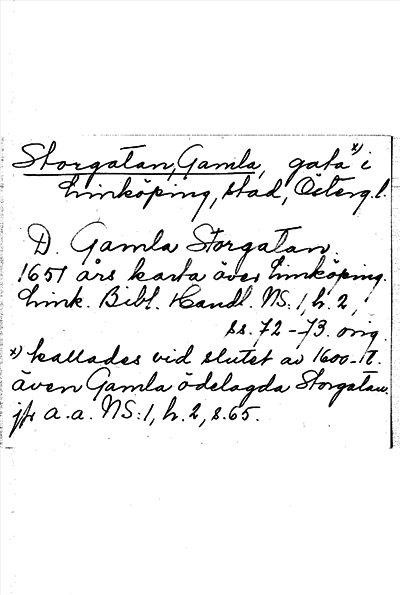 Storgatan, Gamla, gata x) i
Linköping, stad, Östergl.
D. Gamla Storgatan.
1651 års karta över Linköping.
Link. Bibl. Handl. NS: 1, h. 2,
ss. 72-73. orig.
x) kallades vid slutet av 1600-t.
även Gamla ödelagda Storgatan.
jfr a.a. NS: 1, h. 2, s. 65.